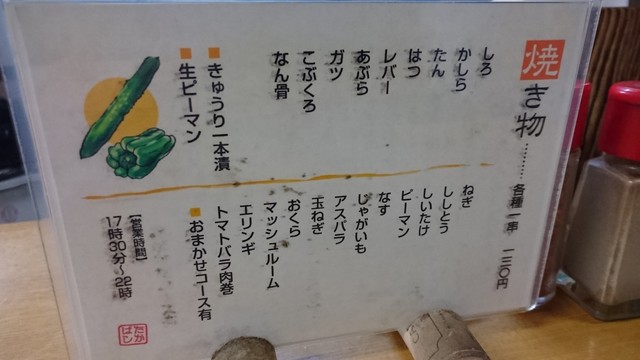 焼き物………各種一串 一三〇円
しろ
かしら
たん
はつ
レバー
あぶら
ガツ
こぶくろ
なん骨
■きゅうり一本漬
■生ピーマン
ねぎ
ししとう
しいたけ
ピーマン
なす
じゃがいも
アスパラ
玉ねぎ
おくら
マッシュルーム
エリンギ
トマトバラ肉巻
■おまかせコース有
【営業時間】
17時30分〜22時